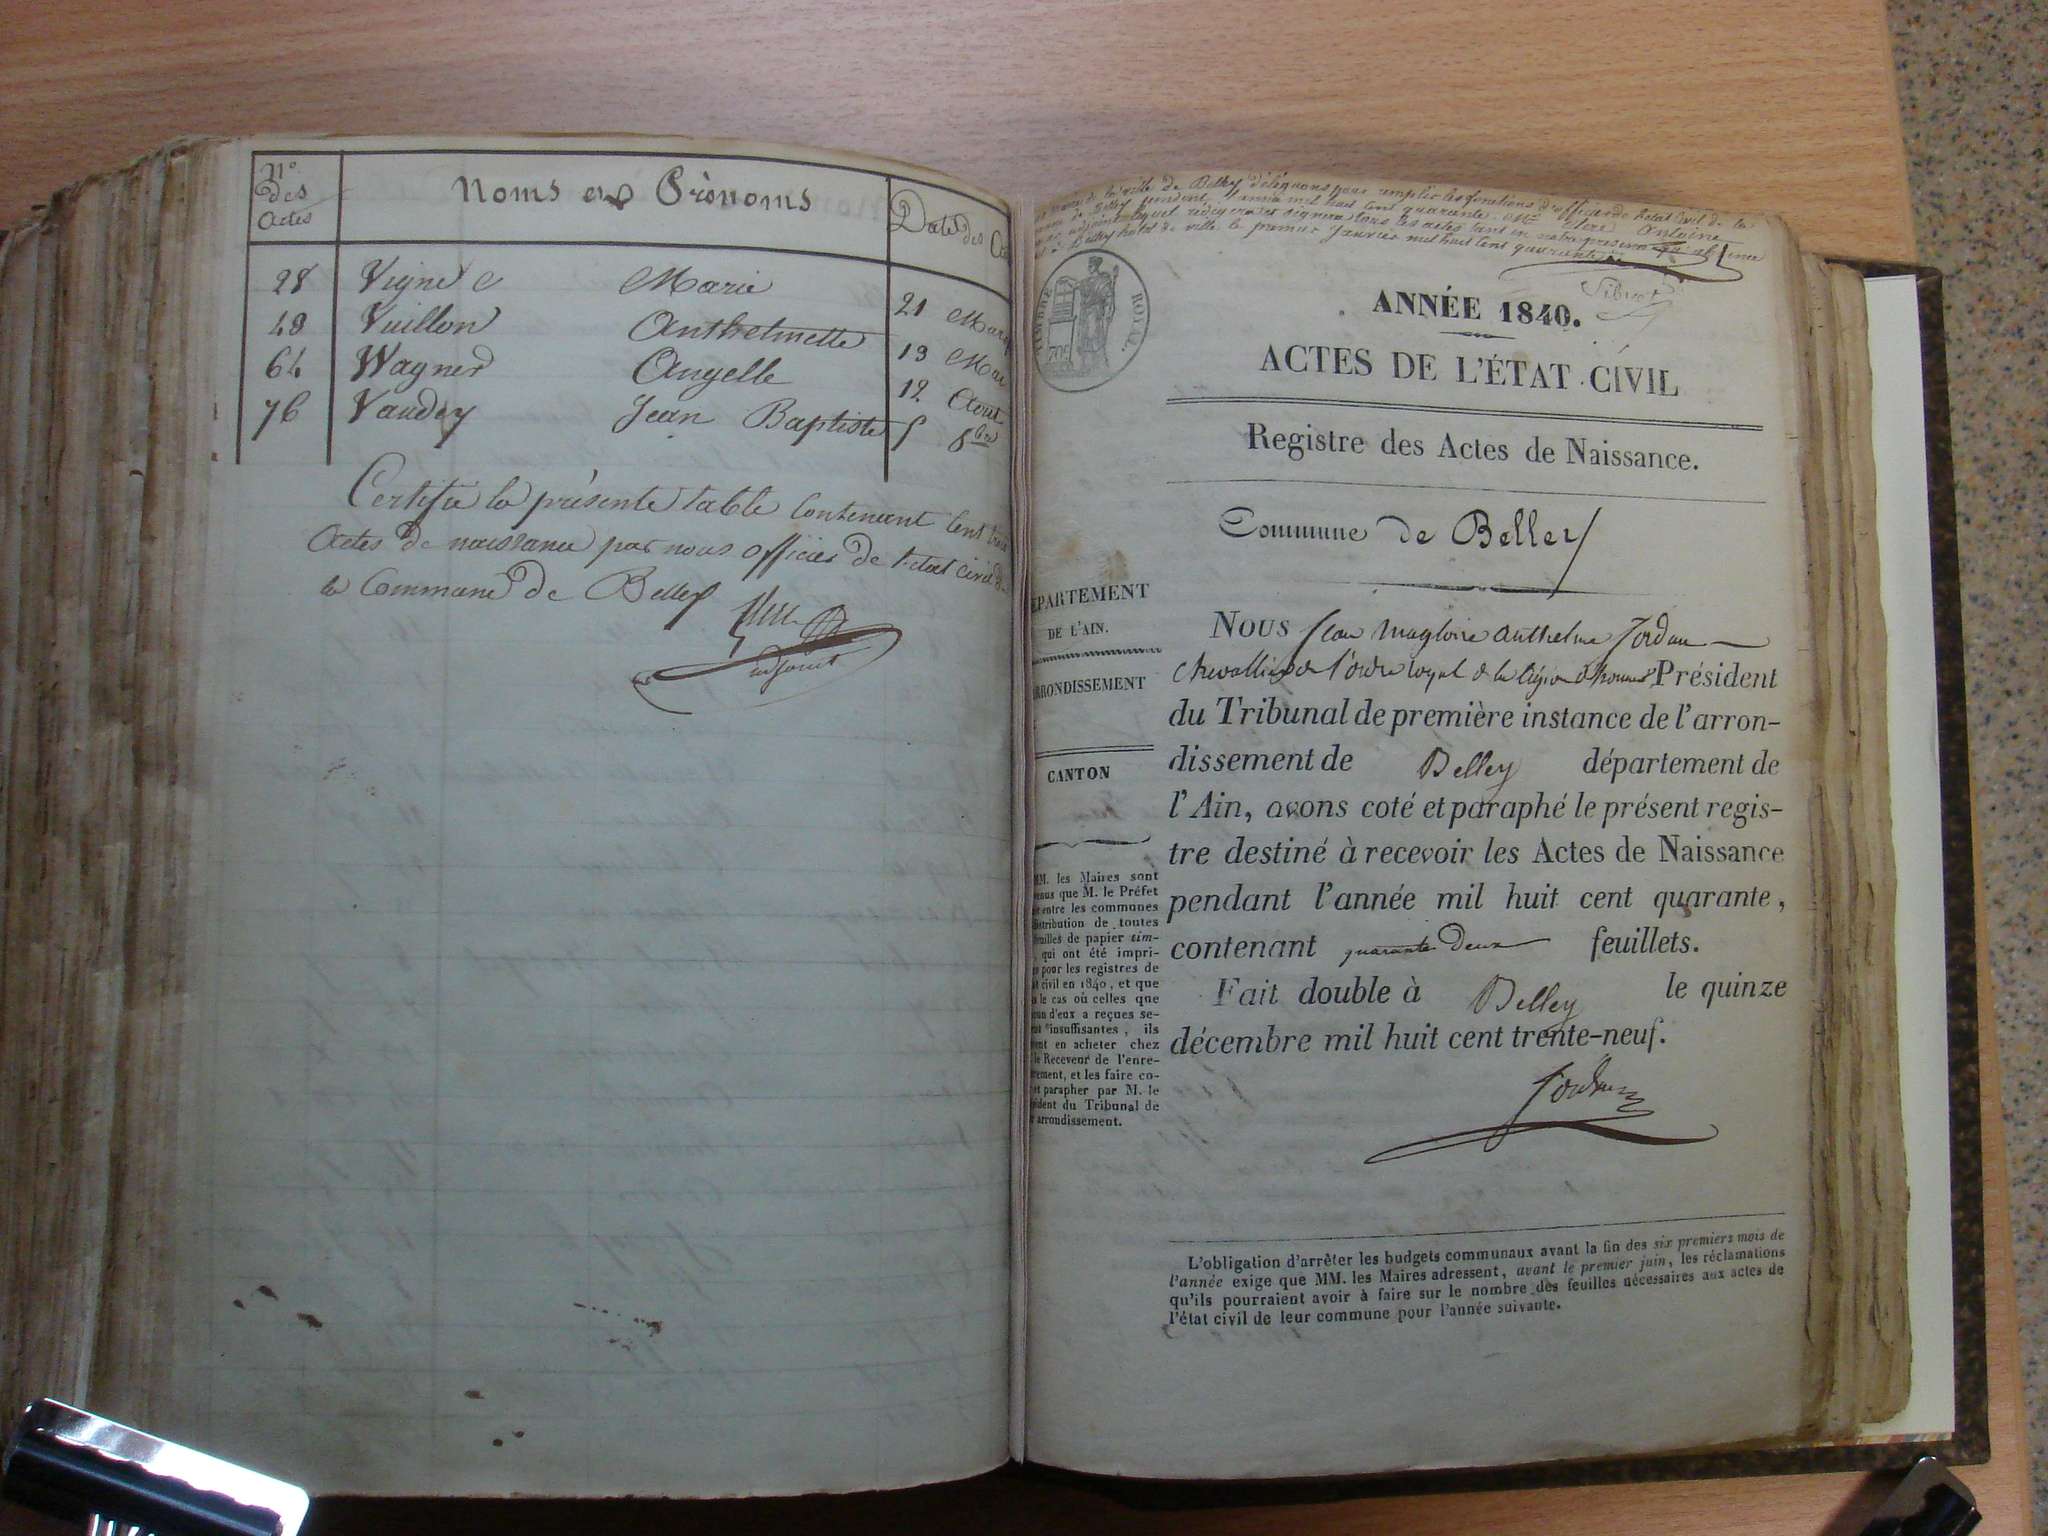 N° des Actes
Noms et Prénoms
Date des
28 Vigne Marie 21
48 Vuillon Anthelmette 19 Mai
64 Wagner Angelle 12 Aout
76 Vaudey Jean Baptiste 5 8bre
Certifié la présente table contenant cent trois
actes de naissance par nous officier de l'etat civil de
la Commune de Belley
adjoint
maire de la ville de Belley déléguons pour remplir les fonctions d'officier de l'etat civil de la
de Belley pendant l'année mil huit cent quarante Antoine
adjoint lequel rédigera et signera tous les actes tant en notre présence absence
Belley hotel de ville le premier Janvier mil huit cent quarante
Sibuet
TIMBRE ROYAL
ANNÉE 1840.
ACTES DE L'ÉTAT CIVIL
Registre des Actes de Naissance.
Commune de Belley
EPARTEMENT
DE L'AIN.
RRONDISSEMENT
CANTON
MM. les Maires sont
venus que M. le Préfet
entre les communes
istribution de toutes
euilles de papier tim-
, qui ont été impri-
pour les registres de
t civil en 1840, et que
le cas où celles que
cun d'eux a reçues se-
insuffisantes, ils
ent en acheter chez
le Receveur de l'enre-
rement, et les faire co-
et parapher par M. le
sident du Tribunal de
arrondissement.
Nous Jean Magloire Anthelme Jordan
chevallier de l'ordre royal de la légion d'honneur Président
du Tribunal de première instance de l'arron-
dissement de Belley département de
l'Ain, avons coté et paraphé le présent regis-
tre destiné à recevoir les Actes de Naissance
pendant l'année mil huit cent quarante,
contenant quarante Deux feuillets.
Fait double à Belley le quinze
décembre mil huit cent trente-neuf.
Jordan
L'obligation d'arrêter les budgets communaux avant la fin des six premiers mois de
l'année exige que MM. les Maires adressent, avant le premier juin, les réclamations
qu'ils pourraient avoir à faire sur le nombre des feuilles nécessaires aux actes de
l'état civil de leur commune pour l'année suivante.